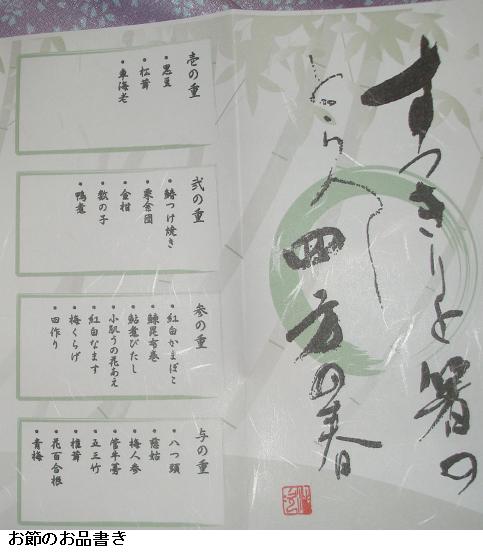 すっきりと箸の
とゝのへし
四方の春
壱の重
・黒豆
・松茸
・車海老
弐の重
・鰆つけ焼き
・栗金団
・金柑
・数の子
・鴨煮
参の重
・紅白かまぼこ
・鰊昆布巻
・鮎煮びたし
・小肌うの花あえ
・紅白なます
・梅くらげ
・田作り
与の重
・八つ頭
・慈姑
・梅人参
・管牛蒡
・五三竹
・椎茸
・花百合根
・青梅
お節のお品書き